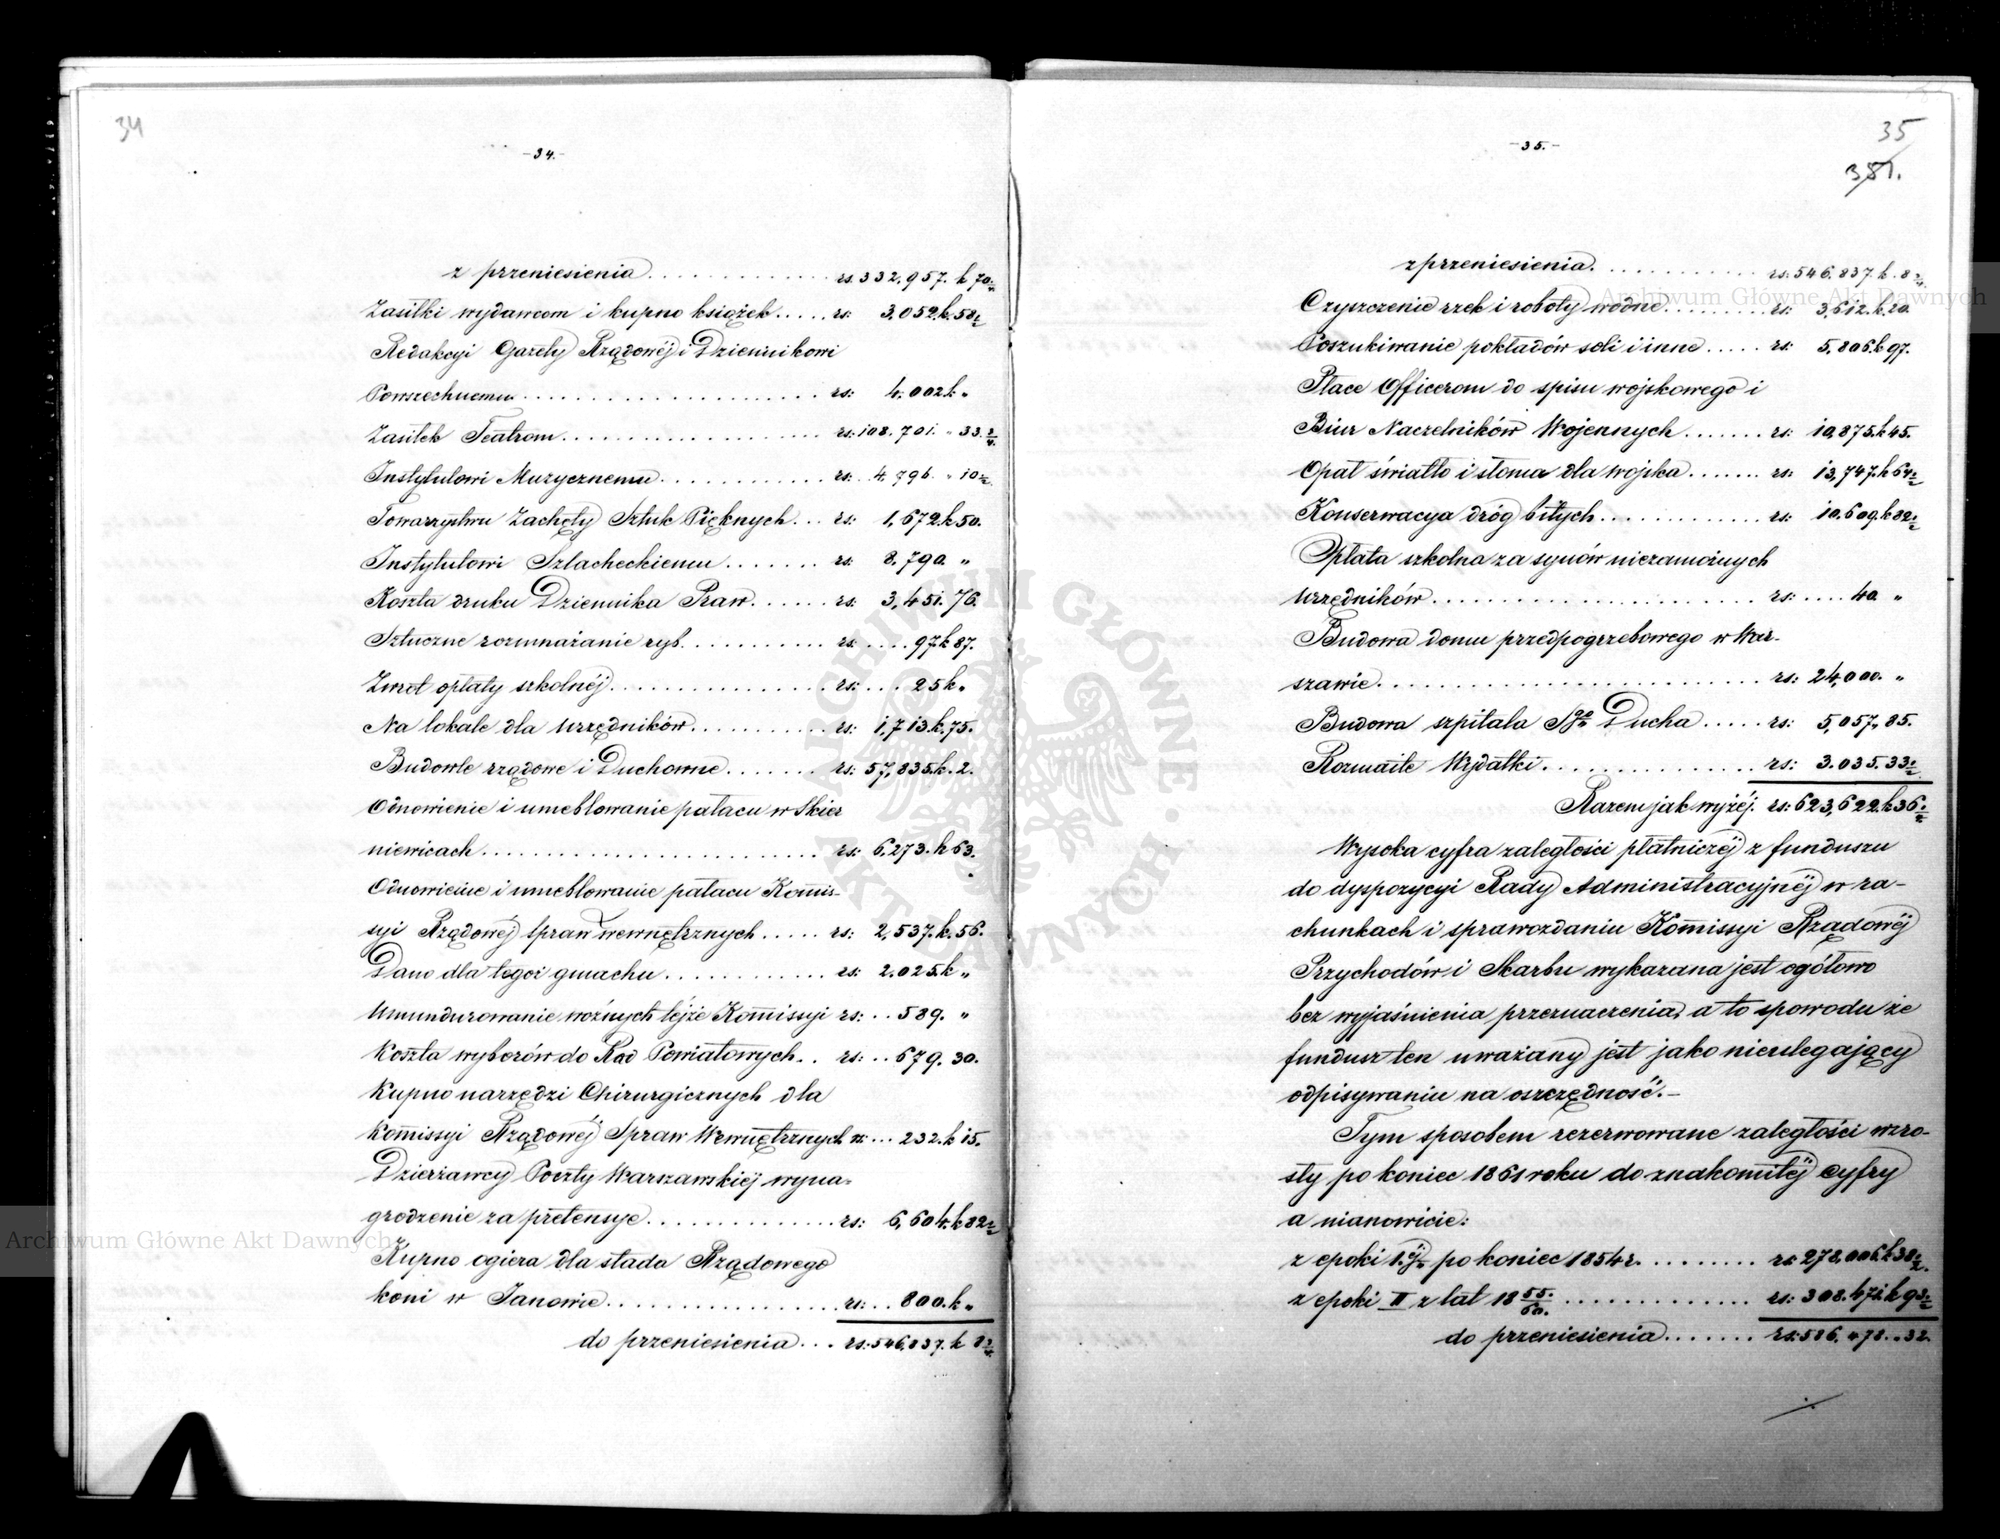 34
-34.-
z przeniesienia . . . . . . . . . . rs. 332,957. k 70
Zasiłki wydawcom i kupno książek . . . . . rs: 3,052. k. 58½
Redakcyi Gazety Rządowéj i Dziennikowi
Powszechnemu . . . . . . . . . . rs: 4,002 k „
Zasiłek Teatrom . . . . . . . . . . rs: 108,701. „ 33.¾
Instytutowi Muzycznemu . . . . . . . . . . rs: 4,796. „ 10½
Towarzystwu Zachęty Sztuk Pięknych . . . rs: 1,672. k 50.
Instytutowi Szlacheckiemu . . . . . . . rs: 8,790. „
Koszta druku Dziennika Praw . . . . . . rs: 3,451. 76.
Sztuczne rozmnażanie ryb . . . . . . . . . . rs: . . . . 97 k 87.
Zwrot opłaty szkolnéj . . . . . . . . . . rs: . . . 25 k „
Na lokale dla urzędników . . . . . . . . . . rs: 1,713. k. 75.
Budowle rządowe i Duchowne . . . . . . . rs: 57,835. k. 2.
Odnowienie i umeblowanie pałacu w Skier
niewicach . . . . . . . . . . rs: 6,273. k 63.
Odnowienie i umeblowanie pałacu Komis-
syi Rządowéj Spraw Wewnętrznych . . . . . rs: 2,537. k. 56.
Dano dla tegoż gmachu . . . . . . . . . . rs: 2,025. k „
Umundurowanie woźnych téjże Kommissyi rs: . . 589. „
Koszta wyborów do Rad Powiatowych . . rs: . . 679. 30.
Kupno narzędzi Chirurgicznych dla
Kommissyi Rządowéj Spraw Wewnętrznych rs: . . . 232. k 15.
Dzierżawcy Poczty Warszawskiéj wyna-
grodzenie za pretensye . . . . . . . . . . rs: 6,604. k 82½
Kupno ogiera dla stada Rządowego
koni w Janowie . . . . . . . . . . rs: . . 800. k „
do przeniesienia . . . rs: 546,837. k 8¾
35
-35.-
381.
z przeniesienia. . . . . . . . . . rs: 546,837. k. 8¾
Czyszczenie rzek i roboty wodne . . . . . . . . . . rs: 3,612. k. 20.
Poszukiwanie pokładów soli i inne . . . . . rs: 5,806. k 97.
Płace Officerom do spisu wojskowego i
Biur Naczelników Wojennych . . . . . . . rs: 10,875. k 45.
Opał światło i słoma dla wojska . . . . . . . rs: 13,747. k 64½
Konserwacya dróg bitych . . . . . . . . . . rs: 10,609. k 82½
Opłata szkolna za synów niezamożnych
urzędników . . . . . . . . . . rs: . . . . 40. „
Budowa domu przedpogrzebowego w War-
szawie . . . . . . . . . . rs: 24,000. „
Budowa szpitala Sgo Ducha . . . . . rs: 5,057. „ 85.
Rozmaite Wydatki . . . . . . . . . . rs: 3.035. 33½
Razem jak wyżéj. rs: 623,622. k 36½
Wysoka cyfra zaległości płatniczéj z funduszu
do dyspozycyi Rady Administracyjnéj w ra-
chunkach i sprawozdaniu Kommissyi Rządowéj
Przychodów i Skarbu wykazana jest ogółowo
bez wyjaśnienia przeznaczenia, a to spowodu że
fundusz ten uważany jest jako nieulegający
odpisywaniu na oszczędność. –
Tym sposobem rezerwowane zaległości wzro-
sły po koniec 1861 roku do znakomitéj cyfry
a mianowicie:
z epoki 1. éj po koniec 1854 r. . . . . . . . . . rs: 278,006. k 38½.
z epoki II z lat 18 55/60. . . . . . . . . . . rs: 308,471. k 93½
do przeniesienia . . . . . . . rs: 586,478. „ 32.
Archiwum Główne Akt Dawnych
Archiwum Główne Akt Dawnych
ARCHIWUM GŁÓWNE AKT DAWNYCH